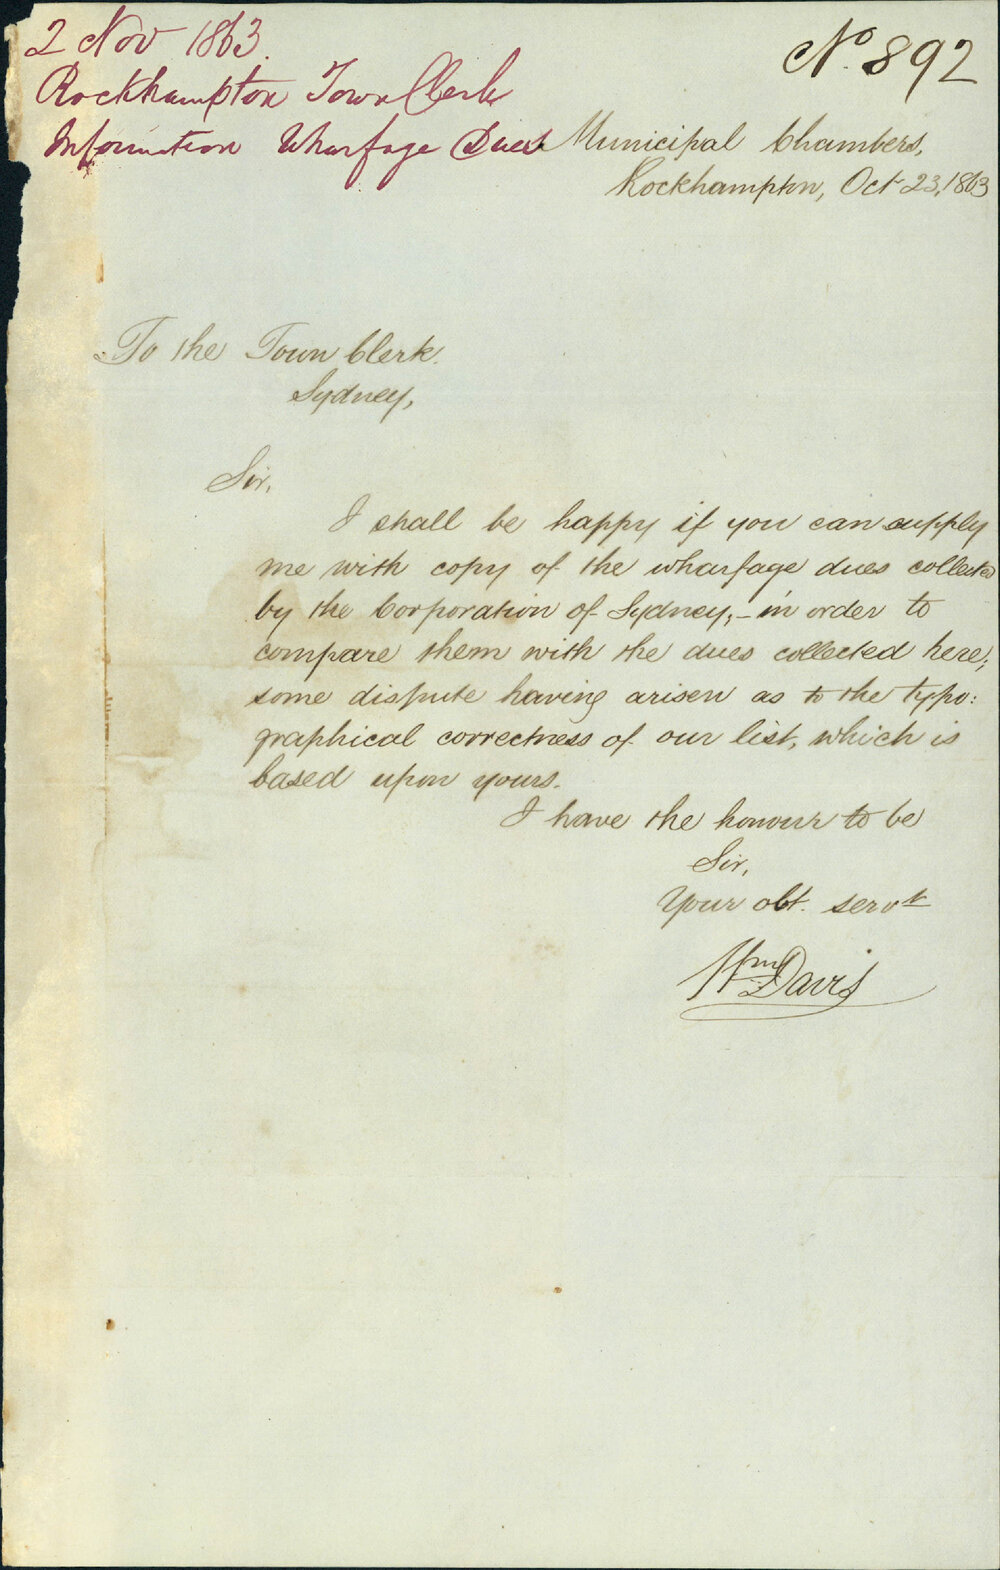 2 Nov 1863.
Rockhampton Town Clerk
Information Wharfage Dues
No. 892
Municipal Chambers,
Rockhampton, Oct 23, 1863
To the Town Clerk.
Sydney,
Sir,
I shall be happy if you can supply
me with copy of the wharfage dues collected
by the Corporation of Sydney, - in order to
compare them with the dues collected here;
some dispute having arisen as to the typo:
graphical correctness of our list, which is
based upon yours.
I have the honour to be
Sir,
Your obt. servt
Wm Davis